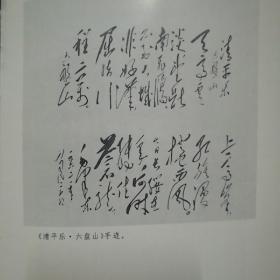 清平乐
六盘山
天高云
淡望断
南飞雁
不到长城
非好汉
屈指行
程二万
六盘山
上高峰
红旗漫
卷西风
今日长缨在
手何时
缚住
苍龙
毛泽东
《清平乐·六盘山》手迹。